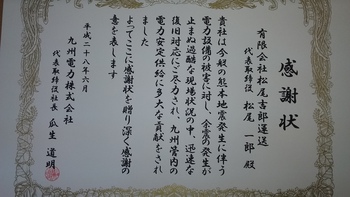 感謝状
有限会社松尾吉郎運送
代表取締役 松尾一郎 殿
貴社は今般の熊本地震発生に伴う
電力設備の被害に対し、余震の発生が
止まぬ過酷な現場状況の中、迅速な
復旧対応にご尽力され、九州管内の
電力安定供給に多大な貢献をされ
ました
よってここに感謝状を贈り深く感謝の
意を表します
平成二十八年六月
九州電力株式会社
代表取締役社長 瓜生 道明